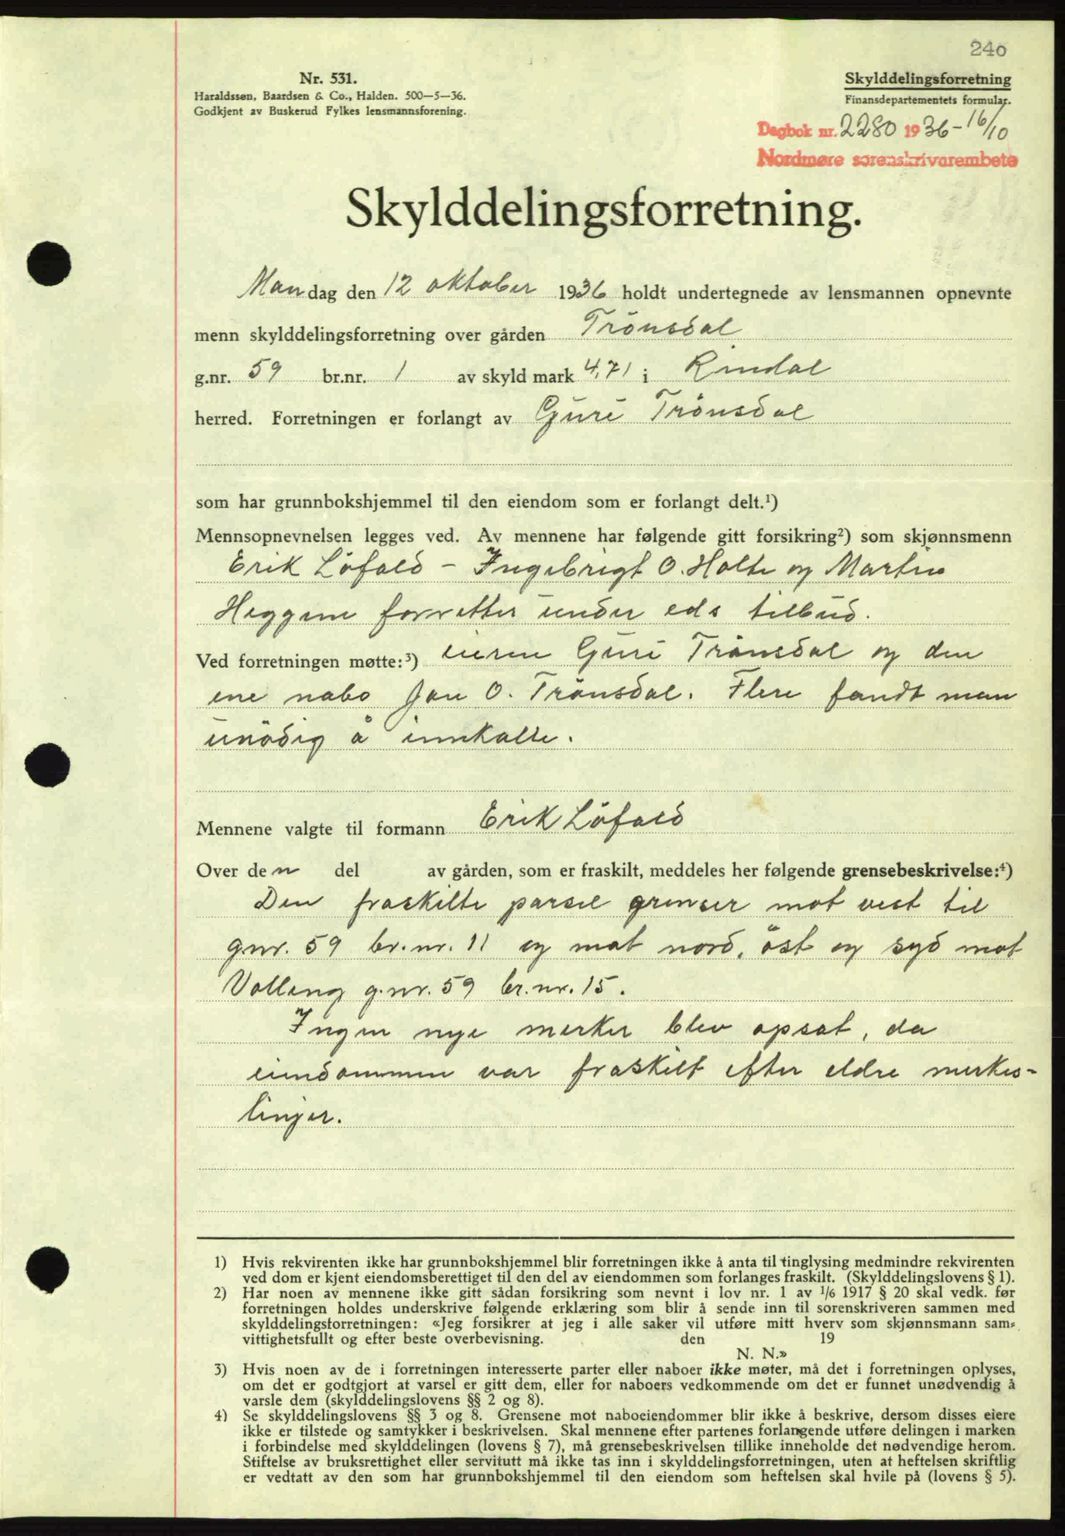 240
Nr. 531.
Haraldssøn, Baardsen & Co., Halden. 500—5—36.
Godkjent av Buskerud Fylkes lensmannsforening.
Skylddelingsforretning
Finansdepartementets formular.
Dagbok nr. 2280 1936 - 16/10
Nordmøre sorenskrivarembete
Skylddelingsforretning.
Mandag den 12 oktober 1936 holdt undertegnede av lensmannen opnevnte
menn skylddelingsforretning over gården Trönsdal
g.nr. 59 br.nr. 1 av skyld mark 4,71 i Rindal
herred. Forretningen er forlangt av Guri Trönsdal
som har grunnbokshjemmel til den eiendom som er forlangt delt.¹)
Mennsopnevnelsen legges ved. Av mennene har følgende gitt forsikring²) som skjønnsmenn
Erik Löfald - Ingebrigt O. Holte og Martin
Heggem forretter under eds tilbud.
Ved forretningen møtte:³) eieren Guri Trönsdal og den
ene nabo Jon O. Trönsdal. Flere fandt man
unödig å innkalle.
Mennene valgte til formann Erik Löfald
Over den del av gården, som er fraskilt, meddeles her følgende grensebeskrivelse:⁴)
Den fraskilte parsel grenser mot vest til
gnr. 59 br.nr. 11 og mot nord, öst og syd mot
Volleng g.nr. 59 br.nr. 15.
Ingen nye merker blev opsat, da
eiendommen var fraskilt efter eldre merkes-
linjer.
1) Hvis rekvirenten ikke har grunnbokshjemmel blir forretningen ikke å anta til tinglysing medmindre rekvirenten
ved dom er kjent eiendomsberettiget til den del av eiendommen som forlanges fraskilt. (Skylddelingslovens § 1).
2) Har noen av mennene ikke gitt sådan forsikring som nevnt i lov nr. 1 av 1/6 1917 § 20 skal vedk. før
forretningen holdes underskrive følgende erklæring som blir å sende inn til sorenskriveren sammen med
skylddelingsforretningen: «Jeg forsikrer at jeg i alle saker vil utføre mitt hverv som skjønnsmann sam-
vittighetsfullt og efter beste overbevisning. den 19
N. N.»
3) Hvis noen av de i forretningen interesserte parter eller naboer ikke møter, må det i forretningen oplyses,
om det er godtgjort at varsel er gitt dem, eller for naboers vedkommende om det er funnet unødvendig å
varsle dem (skylddelingslovens §§ 2 og 8).
4) Se skylddelingslovens §§ 3 og 8. Grensene mot naboeiendommer blir ikke å beskrive, dersom disses eiere
ikke er tilstede og samtykker i beskrivelsen. Skal mennene efter partenes forlangende utføre delingen i marken
i forbindelse med skylddelingen (lovens § 7), må grensebeskrivelsen tillike inneholde det nødvendige herom.
Stiftelse av bruksrettighet eller servitutt må ikke tas inn i skylddelingsforretningen, uten at heftelsen skriftlig
er vedtatt av den som har grunnbokshjemmel til den eiendom som heftelsen skal hvile på (lovens § 5).